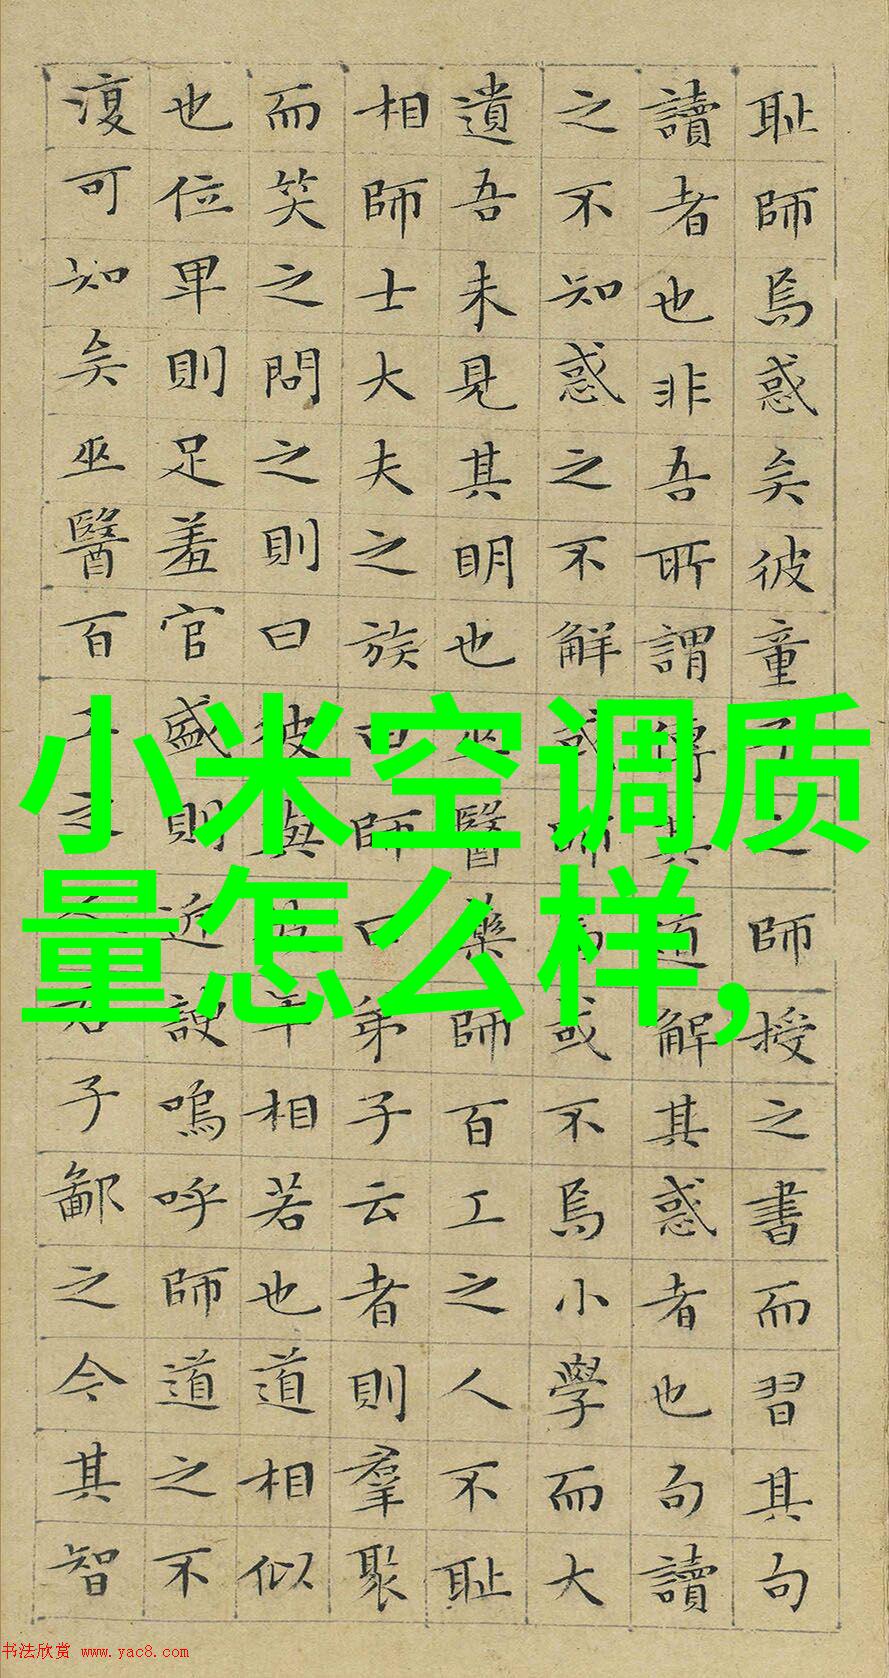 耻師焉惑矣彼童子之師授之書而習其句
讀者也非吾所謂傳其道解其惑者也句讀
之不知惑之不解或師焉或不焉小學而大
遺吾未見其明也巫醫藥師百工之人不耻
相師士大夫之族曰師曰弟子云者則羣聚
而笑之問之則曰彼與彼年相若也道相似
也位卑則足羞官盛則近諛嗚呼師道之不
復可知矣巫醫百工之人君子鄙之今其智
小米空调质
量怎么样,
书法欣赏 www.yac8.com